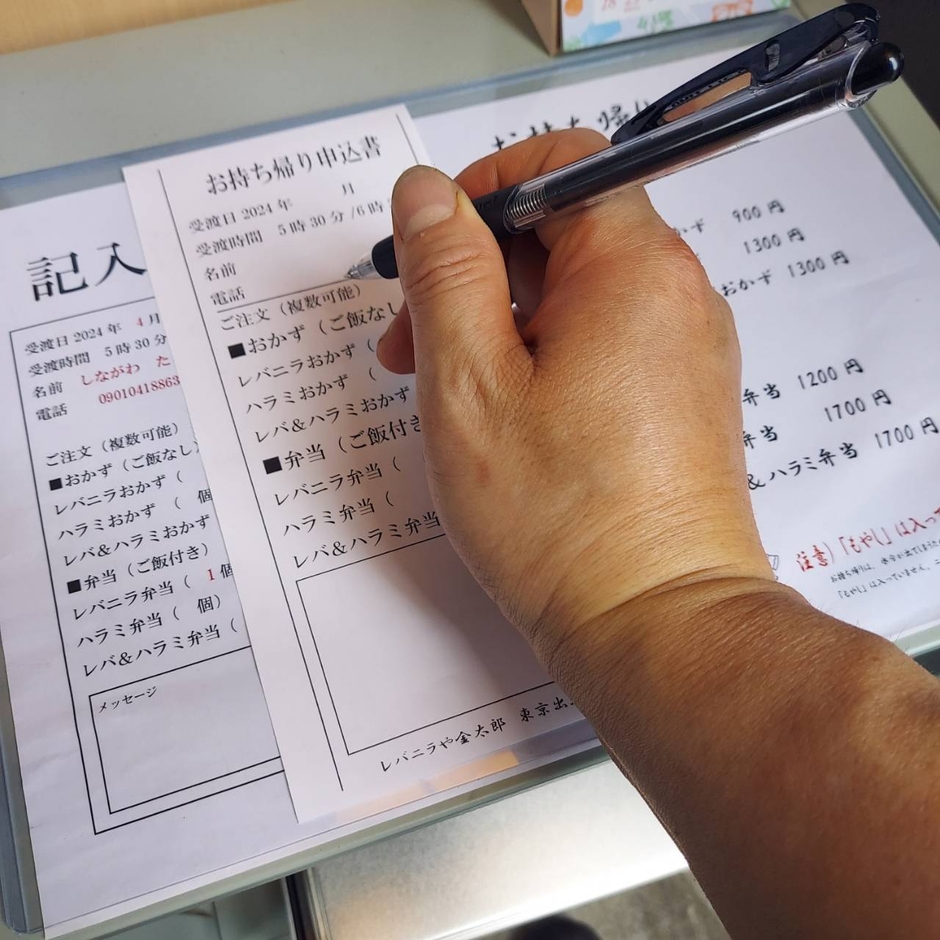 記入
受渡日 2024 年 4 月
受渡時間 5 時 30 分
名前 しながわ た
電話 09010418863
ご注文（複数可能）
■おかず（ご飯なし）
レバニラおかず（
ハラミおかず（ 個
レバ&ハラミおかず
■弁当（ご飯付き）
レバニラ弁当（ 1個
ハラミ弁当（ 個）
レバ&ハラミ弁当（
メッセージ
お持ち帰り申込書
受渡日 2024 年 月
受渡時間 5 時 30 分 /6 時
名前
電話
ご注文（複数可能）
■おかず（ご飯なし
レバニラおかず（
ハラミおかず（
レバ&ハラミおかず
■弁当（ご飯付き
レバニラ弁当（
ハラミ弁当（
レバ&ハラミ弁当
レバニラや金太郎 東京出
お持ち帰り
かず 900 円
1300 円
おかず 1300 円
弁当 1200 円
弁当 1700 円
&ハラミ弁当 1700 円
注意)「もやし」は入っ
「もやし」は入っていません。